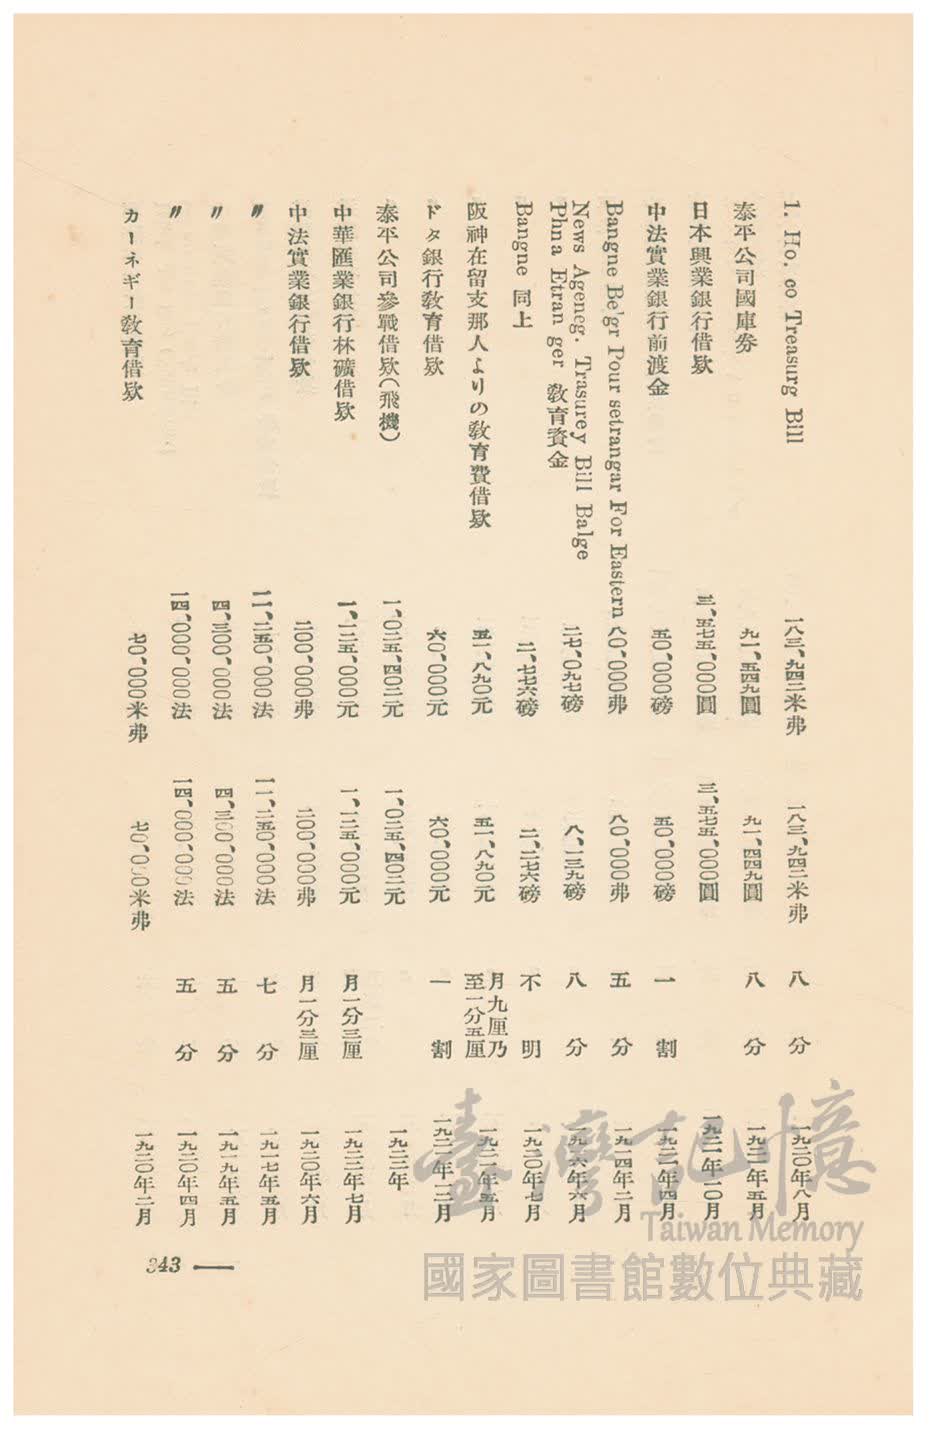 1. Ho. co Treasurg Bill 一八三、九四二米弗 一八三、九四二米弗 八分 一九二〇年八月
泰平公司國庫券 九一、五四九圓 九一、四四九圓 八分 一九二二年五月
日本興業銀行借欵 三、五七五、〇〇〇圓 三、五七五、〇〇〇圓 一九二一年一〇月
中法實業銀行前渡金 五〇、〇〇〇磅 五〇、〇〇〇磅 一割 一九二一年四月
Bangne Be'gr Pour setrangar For Eastern 八〇、〇〇〇弗 八〇、〇〇〇弗 五分 一九一四年二月
News Ageneg. Trasurey Bill Balge
Phna Etran ger 教育資金 二七、〇九七磅 八、一三九磅 八分 一九一六年六月
Bangne 同上 二、七七六磅 二、二七六磅 不明 一九二〇年七月
阪神在留支那人よりの教育費借欵 五一、八九〇元 五一、八九〇元 月九厘乃至一分五厘 一九二一年五月
ドタ銀行教育借欵 六〇、〇〇〇元 六〇、〇〇〇元 一割 一九二一年一二月
泰平公司參戰借欵(飛機) 一、〇二五、四〇二元 一、〇二五、四〇二元 一九二二年
中華匯業銀行林礦借欵 一、一二五、〇〇〇元 一、一二五、〇〇〇元 月一分三厘 一九二二年七月
中法實業銀行借欵 二〇〇、〇〇〇弗 二〇〇、〇〇〇弗 月一分三厘 一九二〇年六月
〃 一一、二五〇、〇〇〇法 一一、二五〇、〇〇〇法 七分 一九一七年五月
〃 四、三〇〇、〇〇〇法 四、三〇〇、〇〇〇法 五分 一九一九年五月
〃 一四、〇〇〇、〇〇〇法 一四、〇〇〇、〇〇〇法 五分 一九二〇年四月
カーネギー教育借欵 七〇、〇〇〇米弗 七〇、〇〇〇米弗 一九二〇年二月
343
臺灣記憶
Taiwan Memory
國家圖書館數位典藏